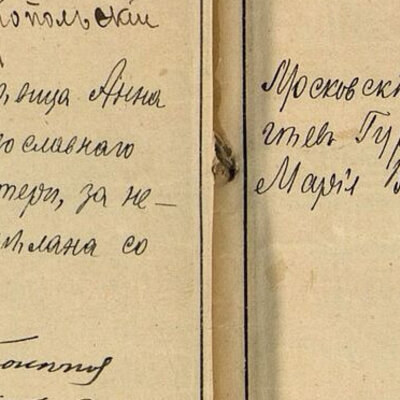 опольскій
вица Анна
ославнаго
тери, за не—
ѣлана со
Московскі
Гур
Марія